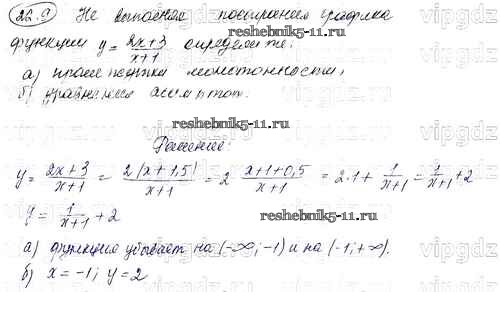 22.9 Не выполняя построения графика
reshebnik5-11.ru
функции y = 2x+3/x+1 определите:
а) промежутки монотонности,
б) уравнения асимптот.
reshebnik5-11.ru
Решение:
y = 2x+3/x+1 = 2(x+1,5)/x+1 = 2 x+1+0,5/x+1 = 2·1+ 1/x+1 = 1/x+1 +2
y = 1/x+1 + 2
reshebnik5-11.ru
а) функция убывает на (-∞; -1) и на (-1; +∞).
б) x = -1; y = 2
reshebnik5-11.ru
vipgdz
vipgdz
vipgdz
vipgdz